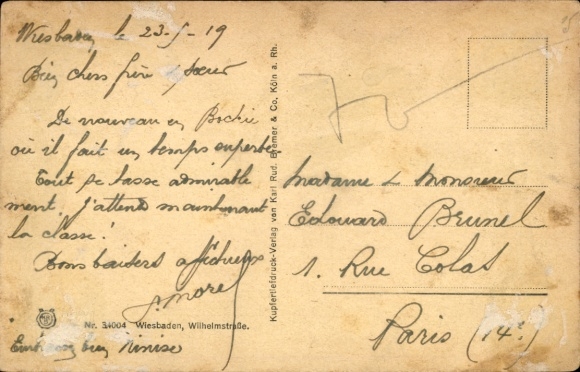 Wiesbaden le 23-5-19
Bien chers frère & sœur
De nouveau en Bochie
où il fait un temps superbe.
Tout se passe admirable
ment. J'attends maintenant
la classe!
Bons baisers affectueux
Morel
Nr. 34004 Wiesbaden, Wilhelmstraße.
Embrassez bien Ninise
Kupfertiefdruck-Verlag von Karl Rud. Bremer & Co. Köln a. Rh.
Madame & Monsieur
Edouard Brunel
1. Rue Colas
Paris (14e)